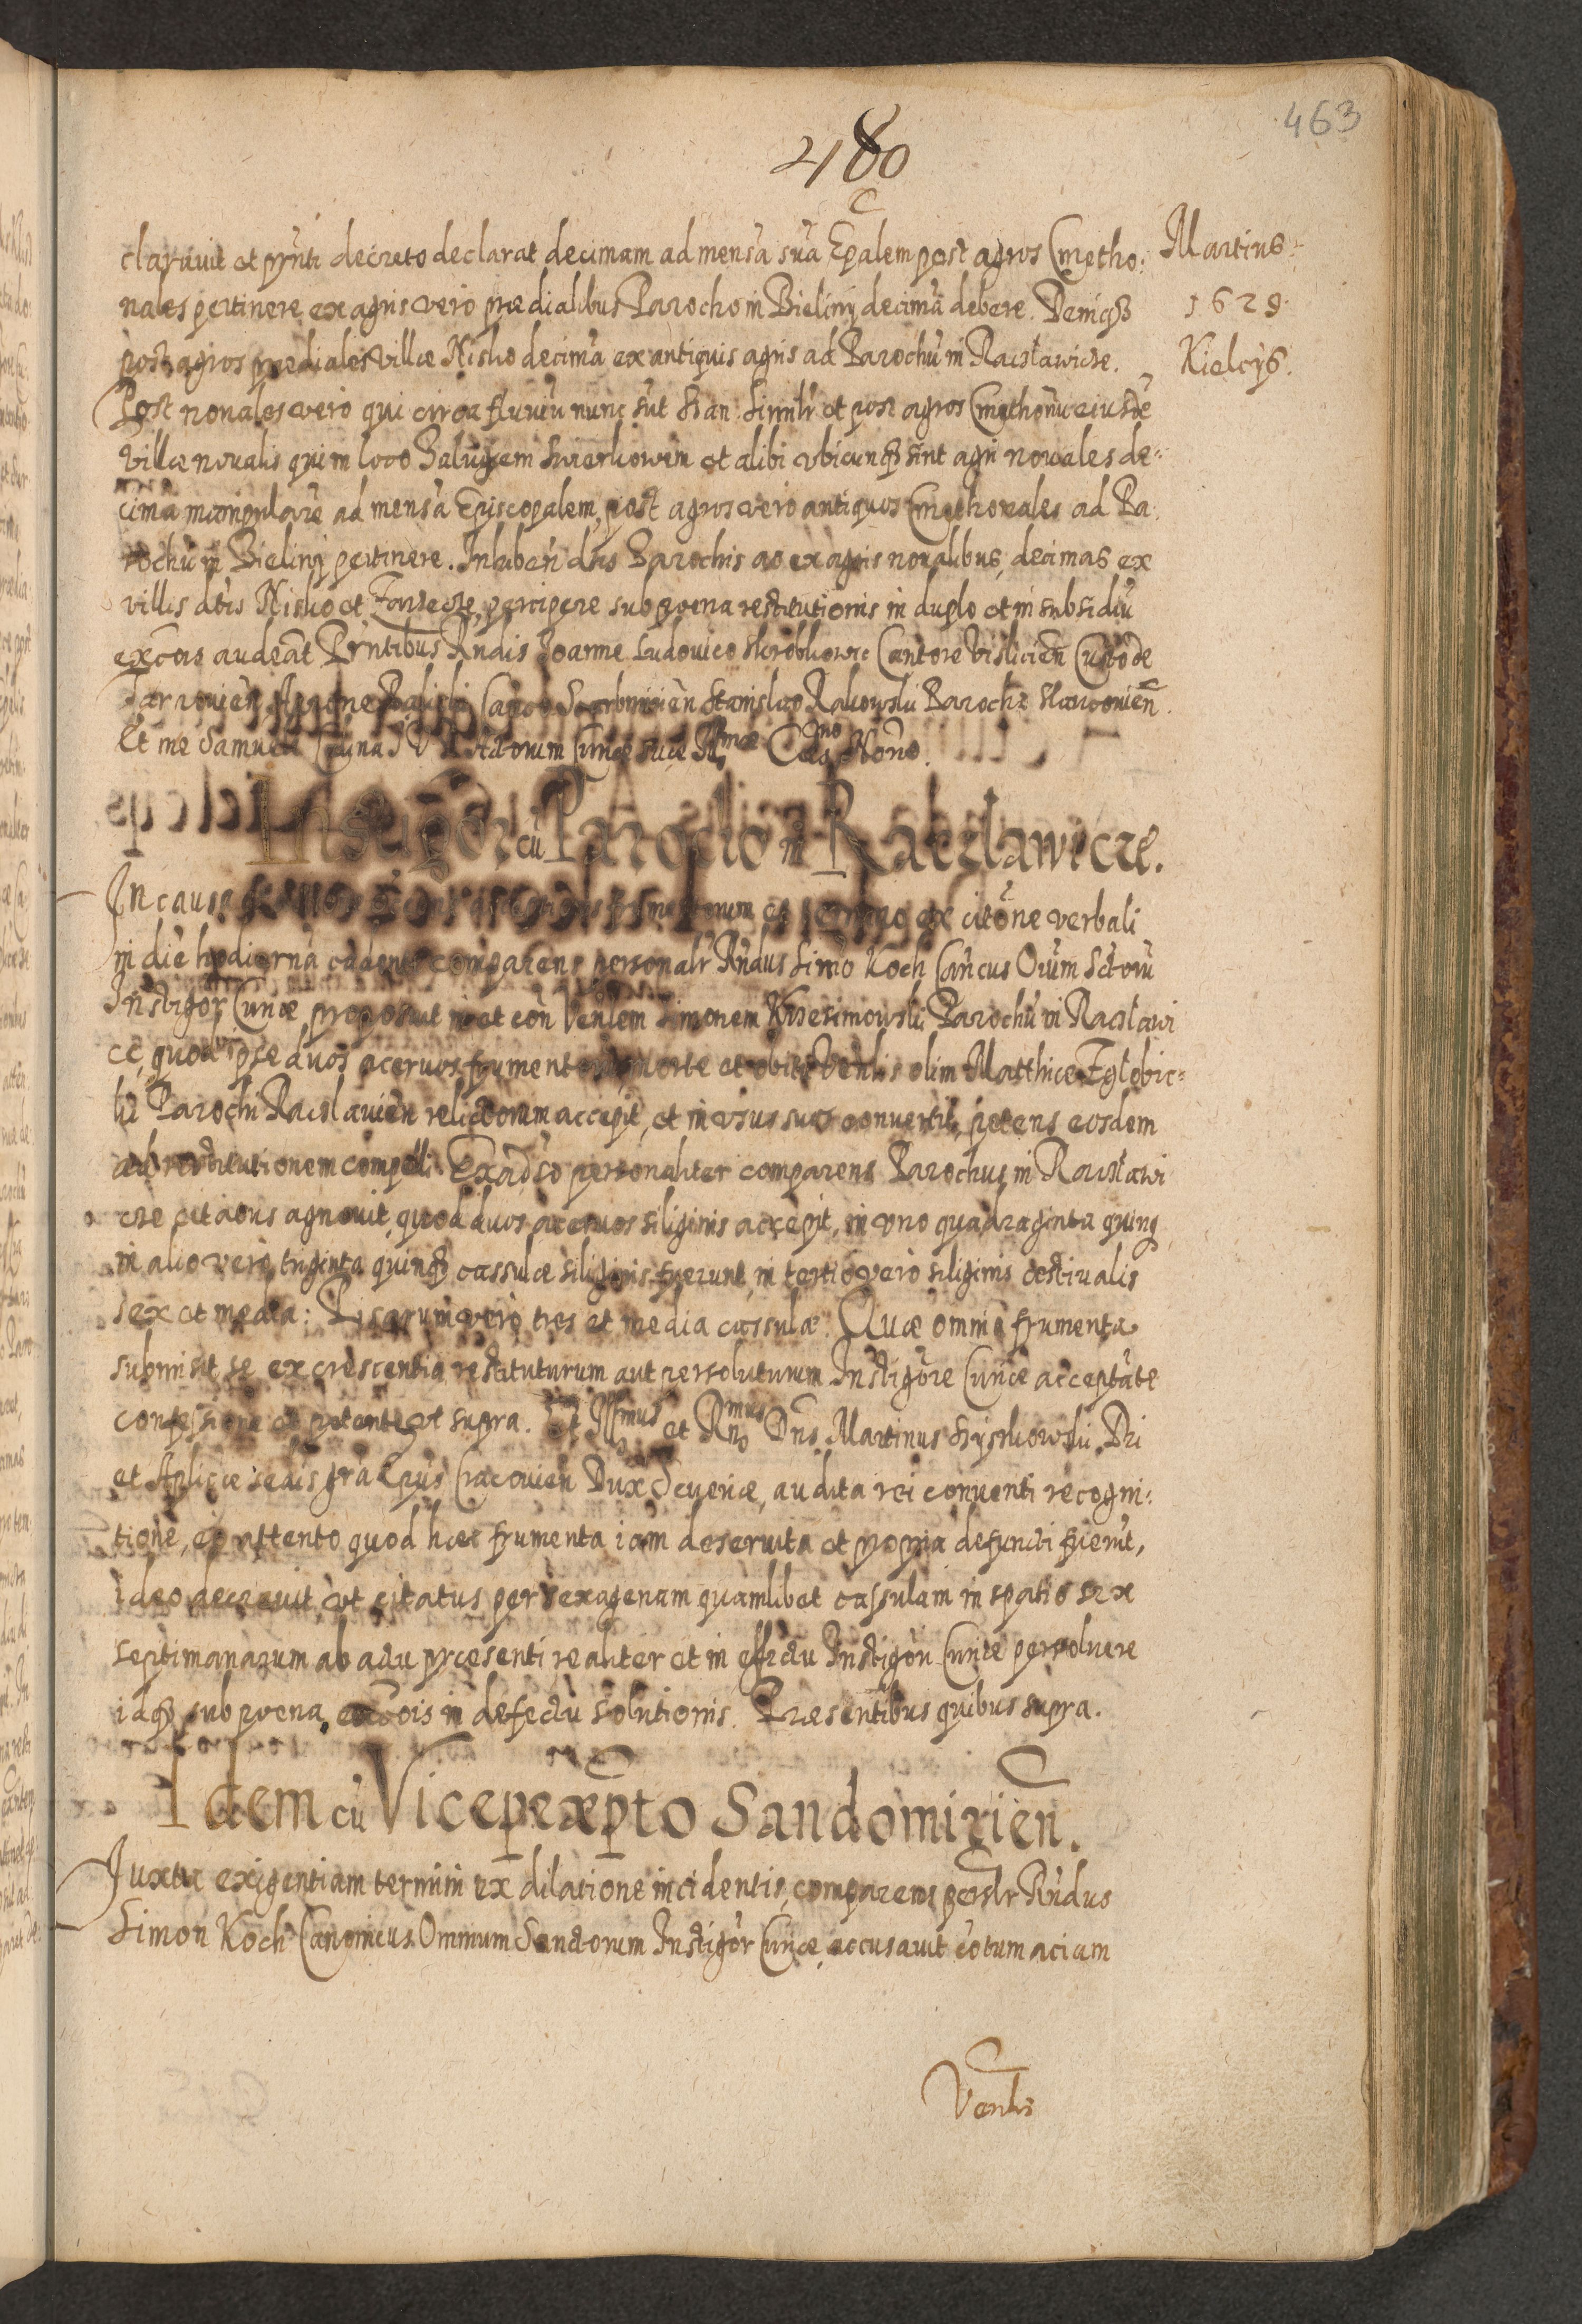 463
480
claravit et pn̄ti decreto declarat decimam ad mensā suā Ep̄alem post agros Cmetho:
Martius.
nales pertinere ex agris vero prædialibus Parocho in Bieliny decimā debere. Deniqȝ
1629.
post agros prædiales villæ Nisko decimā ex antiquis agris ad Parochū in Racławicze.
Kielcys.
Post novales vero qui circa fluviū nunc sūt San. Simīlr et post agros Cmethonū eiusdē
villæ novalis qui in loco et alibi ubicunqȝ sint agri novales de:
cimā manipularē ad mensā Episcopalem, post agros vero antiquos Cmethonales ad Pa:
rochū in Bieliny pertinere. Inhiben dtis Parochis ac ex agris novalibus, decimas ex
villis dtis Nisko et percipere sub pœna restitutionis in duplo et in subsidiū
excōis audeāt Pn̄tibus Rn̄dis Joanne Ludovico Cantore Vislicien̄ Custode
Tarnovien̄ Stanislao Rakowski Parocho
Et me Samuele Actorum Curiæ suæ Illmæ Celsno Nōno.
Instigōr cū Parocho in Racezławicze.
In causa et termino ex citōne verbali
in die hodierna cadenti comparens personalr̄ Rn̄dus Simō Koch Cān̄cus Oīum Sctorū
Instigōr Curiæ proposuit in et con Venlem Simonem Krzesimowski Parochū in Racławi
ce, quod ipse duos acervos frumentorū morte et obitu Venlis olim Matthiæ Zglobic:
ki Parochi Racslavien̄ relictorum accepit, et in usus suos convertit, petens eosdem
ad restitutionem compelli. Ex adv̄so personaliter comparens Parochus in Racławi
cze citatus agnovit, quod duos acervos siliginis accepit, in uno quadraginta quinqȝ
in alio vero triginta quinqȝ cassulæ siliginis fuerunt, in tertio vero siliginis æstivalis
sex et media: Pisarum vero tres et media cassulæ. Quæ omnia frumenta
submisit se ex crescentia restituturum aut persoluturum Instigōre Curiæ acceptāte
confessionē et petente ut supra. Et Illmus et Rn̄dmus Dn̄s Martinus Szyszkowski Dei
et Aplicæ sedis grā Ep̄us Cracovien̄ Dux Severiæ, audita rei conventi recogni:
tione, eo attento quod hæc frumenta iam deservita et propria defuncti fuerūt,
ideo decrevit, ut citatus per sexagenam quamlibet cassulam in spatio sex
septimanarum ab actu præsenti realiter et in effectu Instigōri Curiæ persolvere
idqȝ sub pœna excōis in defectu solutionis. Præsentibus quibus supra.
Idem cū Sandomirien̄.
Juxta exigentiam termini ex dilatione incidentis, comparens persōlr Rn̄dus
Simon Koch Canonicus Omnium Sanctorum Instigōr Curiæ, accusavit cōtumaciam
Venlis